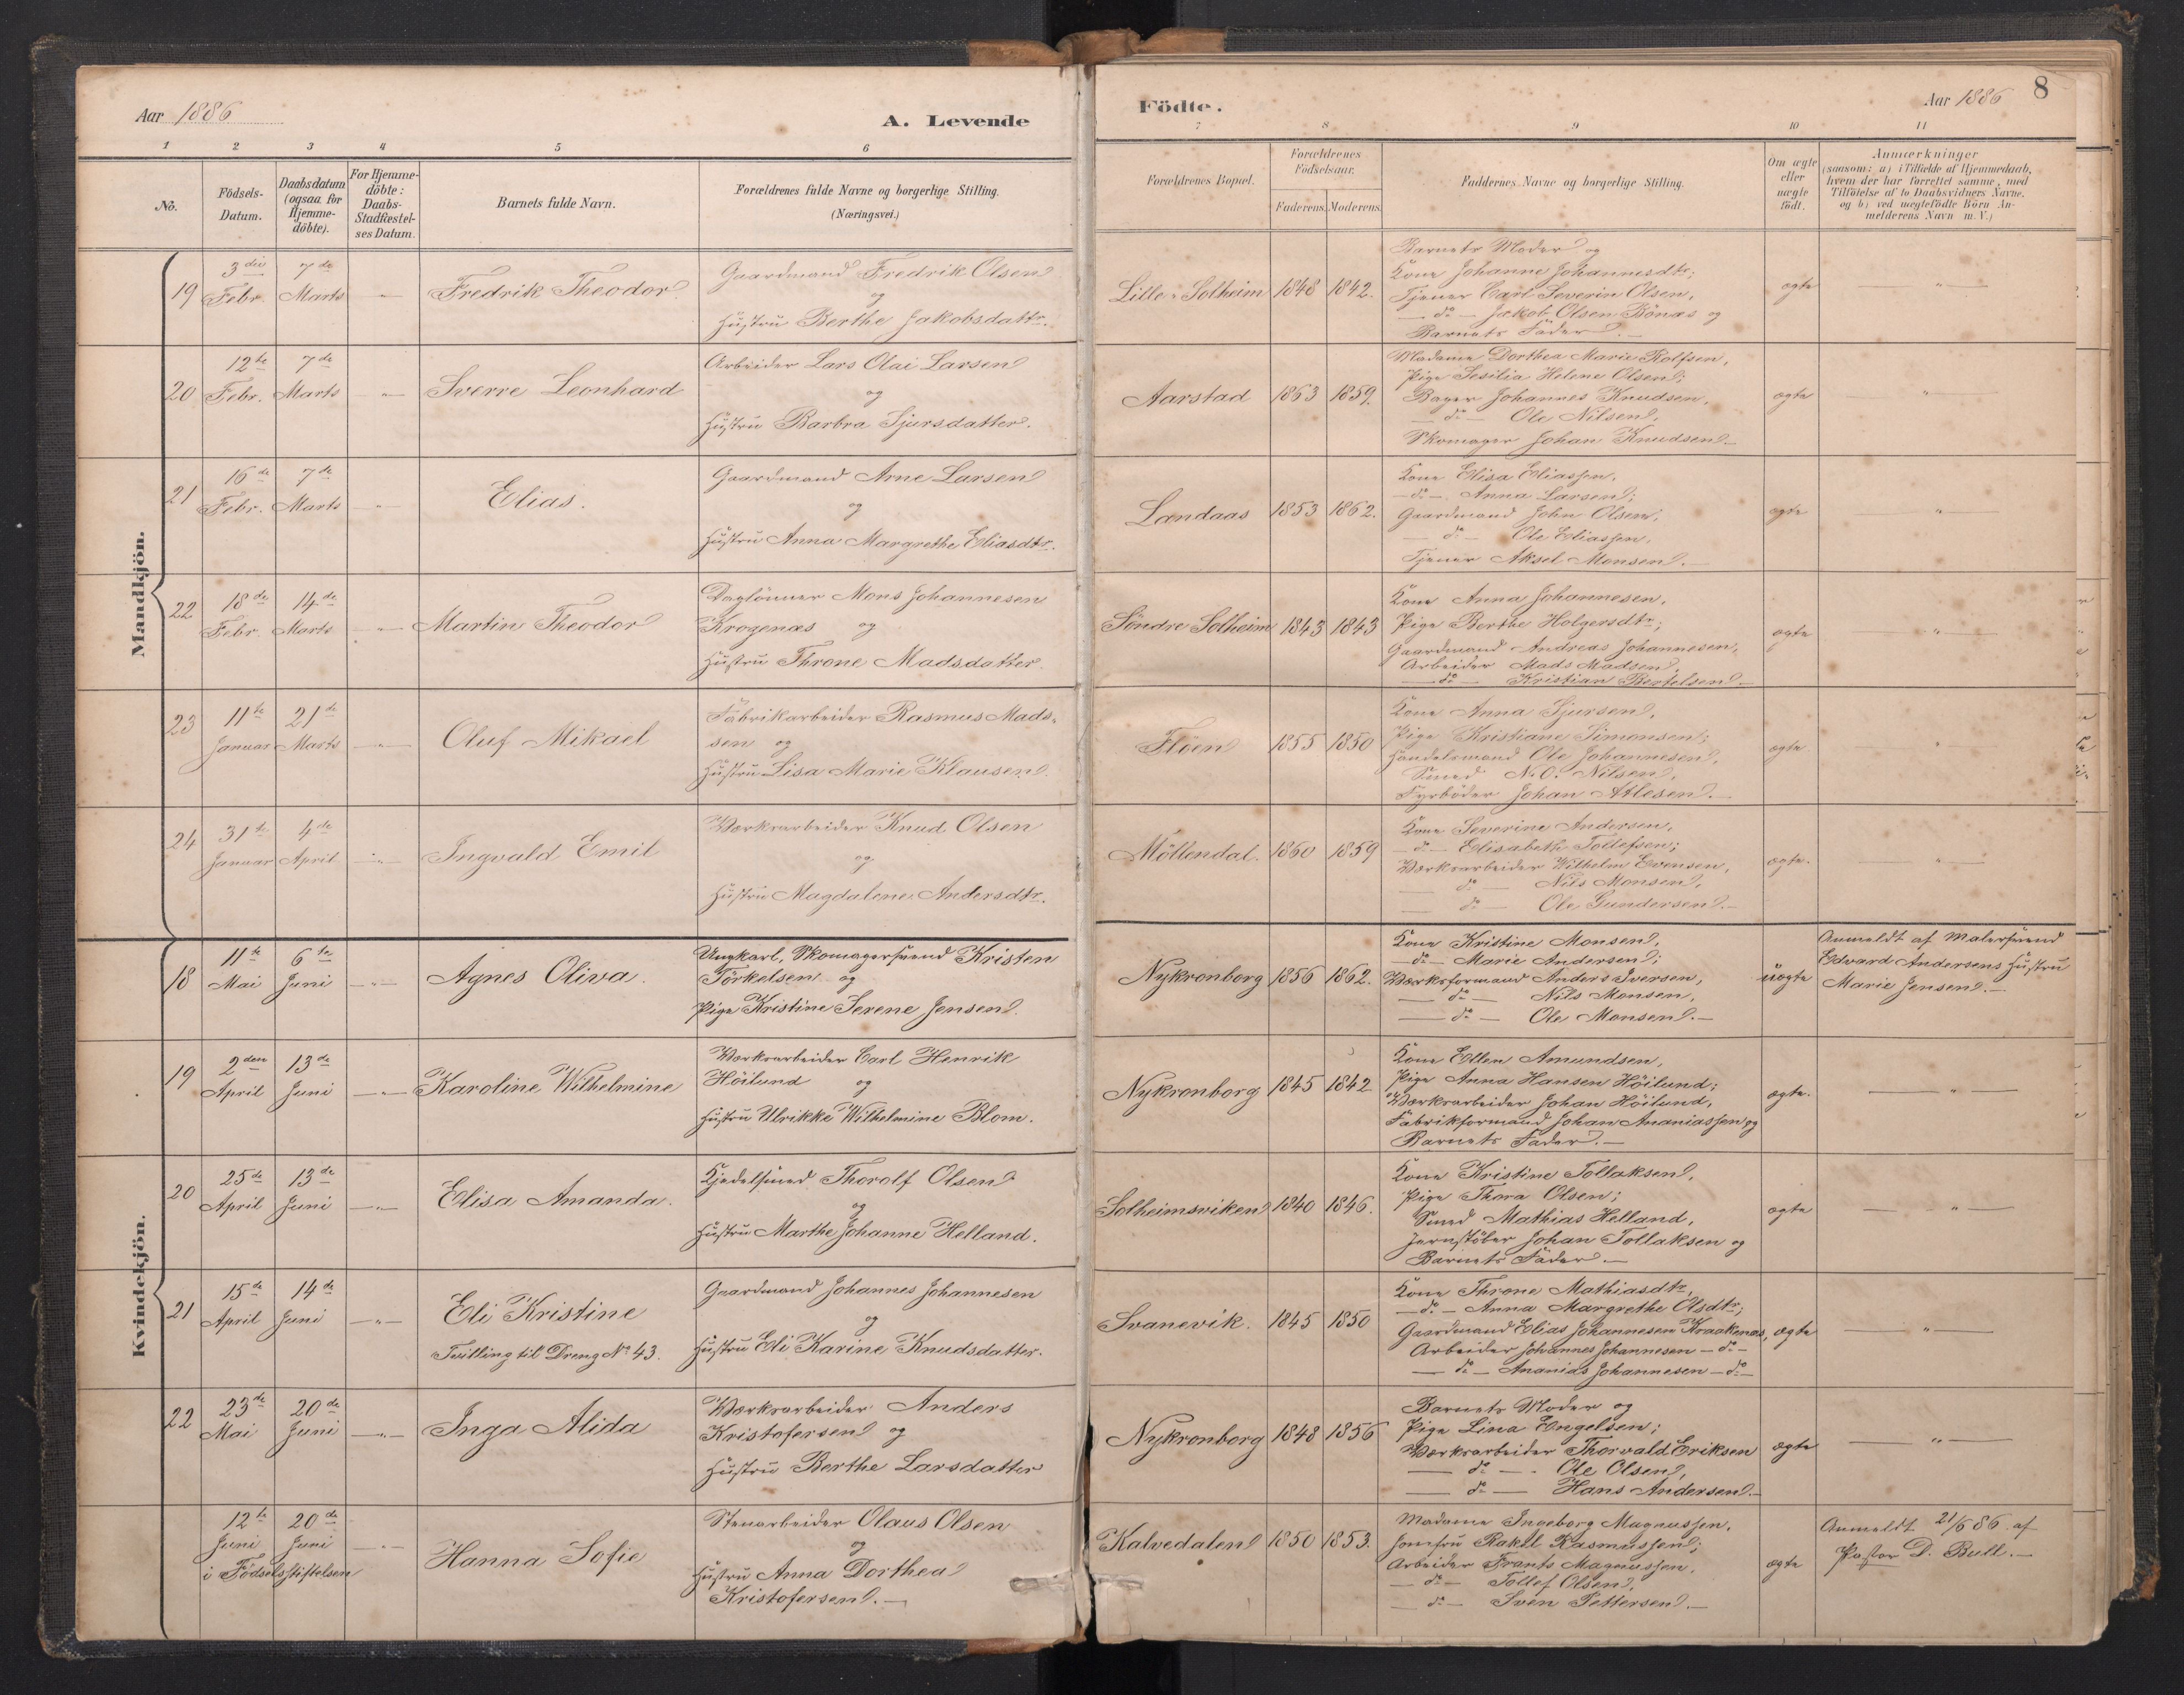 Aar 1886
A. Levende
Födte.
Aar 1886
8
1 2 3 4 5 6 7 8 9 10 11
No.
Födsels-Datum.
Daabsdatum (ogsaa for Hjemme-döbte).
For Hjemme-döbte: Daabs-Stadfæstel-ses Datum.
Barnets fulde Navn.
Forældrenes fulde Navne og borgerlige Stilling.
(Næringsvei.)
Forældrenes Bopæl.
Forældrenes Födselsaar.
Faderens. Moderens.
Faddernes Navne og borgerlige Stilling.
Om ægte eller uægte födt.
Anmærkninger
(saasom: a) i Tilfælde af Hjemmedaab,
hvem der har forrettet samme, med
Tilföielse af to Daabsvidners Navne.
og b) ved uægtefödte Börn An-
melderens Navn m. V.)
Mandkjön.
19
3die Febr.
7de Marts
Fredrik Theodor
Gaardmand Fredrik Olsen
og
Hustru Berthe Jakobsdattr.
Lille-Solheim
1848
1842.
Barnets Moder og
Kone Johanne Johannesdtr;
Tjener Carl Severin Olsen,
— do — Jakob Olsen Bönæs og
Barnets Fader. —
ægte
— " —
20
12te Febr.
7de Marts
Sverre Leonhard
Arbeider Lars Olai Larsen
og
Hustru Barbra Sjursdatter.
Aarstad
1863
1859.
Madame Dorthea Marie Rolfsen,
Pige Sesilia Helene Olsen;
Bager Johannes Knudsen,
— do — Ole Nilsen,
Skomager Johan Knudsen. —
ægte
— " —
21
16de Febr.
7de Marts
Elias.
Gaardmand Arne Larsen
og
Hustru Anna Margrethe Eliasdtr.
Landaas
1853
1862.
Kone Elisa Eliassen,
— do — Anna Larsen;
Gaardmand John Olsen,
— do — Ole Eliassen,
Tjener Aksel Monsen. —
ægte
— " —
22
18de Febr.
14de Marts
Martin Theodor
Daglönner Mons Johannesen
Krogenæs og
Hustru Throne Madsdatter.
Söndre Solheim
1843
1843
Kone Anna Johannesen,
Pige Berthe Holgersdtr;
Gaardmand Andreas Johannesen,
Arbeider Mads Madsen,
— do — Kristian Bertelsen —
ægte
— " —
23
11te Januar
21de Marts
Oluf Mikael
Fabrikarbeider Rasmus Mads-
sen og
Hustru Lisa Marie Klausen.
Flöen
1855
1850
Kone Anna Sjursen,
Pige Kristiane Simonsen;
Handelsmand Ole Johannesen,
Smed N. O. Nilsen,
Fyrböder Johan Atlesen. —
ægte
— " —
24
31te Januar
4de April
Ingvald Emil
Værksarbeider Knud Olsen
og
Hustru Magdalene Andersdtr.
Möllendal.
1860
1859
Kone Severine Andersen,
— do — Elisabeth Tollefsen;
Værksarbeider Wilhelm Evensen,
— do — Nils Monsen,
— do — Ole Gundersen. —
ægte.
— " —
Kvindekjön.
18
11te Mai
6te Juni
Agnes Oliva.
Ungkarl, Skomagersvend Kristen
Törkelsen og
Pige Kristine Serene Jensen.
Nykronborg
1856
1862.
Kone Kristine Monsen,
— do — Marie Andersen;
Værksformand Anders Iversen,
— do — Nils Monsen,
— do — Ole Monsen. —
uægte
Anmeldt af Malersvend
Edvard Andersens Hustru
Marie Jensen. —
19
2den April
13de Juni
Karoline Wilhelmine
Værksarbeider Carl Henrik
Höilund og
Hustru Ulrikke Wilhelmine Blom.
Nykronborg
1845
1842
Kone Ellen Amundsen,
Pige Anna Hansen Höilund;
Værksarbeider Johan Höilund,
Fabrikformand Johan Ananiassen og
Barnets Fader. —
ægte.
— " —
20
25de April
13de Juni
Elisa Amanda.
Kjedelsmed Thorolf Olsen
og
Hustru Marthe Johanne Helland.
Solheimsviken
1840
1846.
Kone Kristine Tollaksen,
Pige Thora Olsen;
Smed Mathias Helland,
Jernstöber Johan Tollaksen og
Barnets Fader —
ægte
— " —
21
15de April
14de Juni
Eli Kristine
Tvilling til Dreng No 43.
Gaardmand Johannes Johannesen
og
Hustru Eli Karine Knudsdatter.
Svanevik.
1845
1850
Kone Throne Mathiasdtr,
— do — Anna Margrethe Olsdtr;
Gaardmand Elias Johannesen Kraakenæs,
Arbeider Johannes Johannesen — do —
— do — Ananias Johannesen — do —
ægte
— " —
22
23de Mai
20de Juni
Inga Alida
Værksarbeider Anders
Kristofersen og
Hustru Berthe Larsdatter
Nykronborg
1848
1856
Barnets Moder og
Pige Lina Engelsen;
Værksarbeider Thorvald Eriksen
— do — Ole Olsen,
— do — Hans Andersen. —
ægte
— " —
12te Juni
i Födselsstiftelsen
20de Juni
Hanna Sofie
Stenarbeider Olaus Olsen
og
Hustru Anna Dorthea
Kristofersen. —
Kalvedalen
1850
1853.
Madame Ingeborg Magnussen,
Jomfru Rakel Rasmussen;
Arbeider Frants Magnussen,
— do — Tollef Olsen,
— do — Sven Pettersen. —
ægte
Anmeldt 21/6 86. af
Pastor D. Bull. —